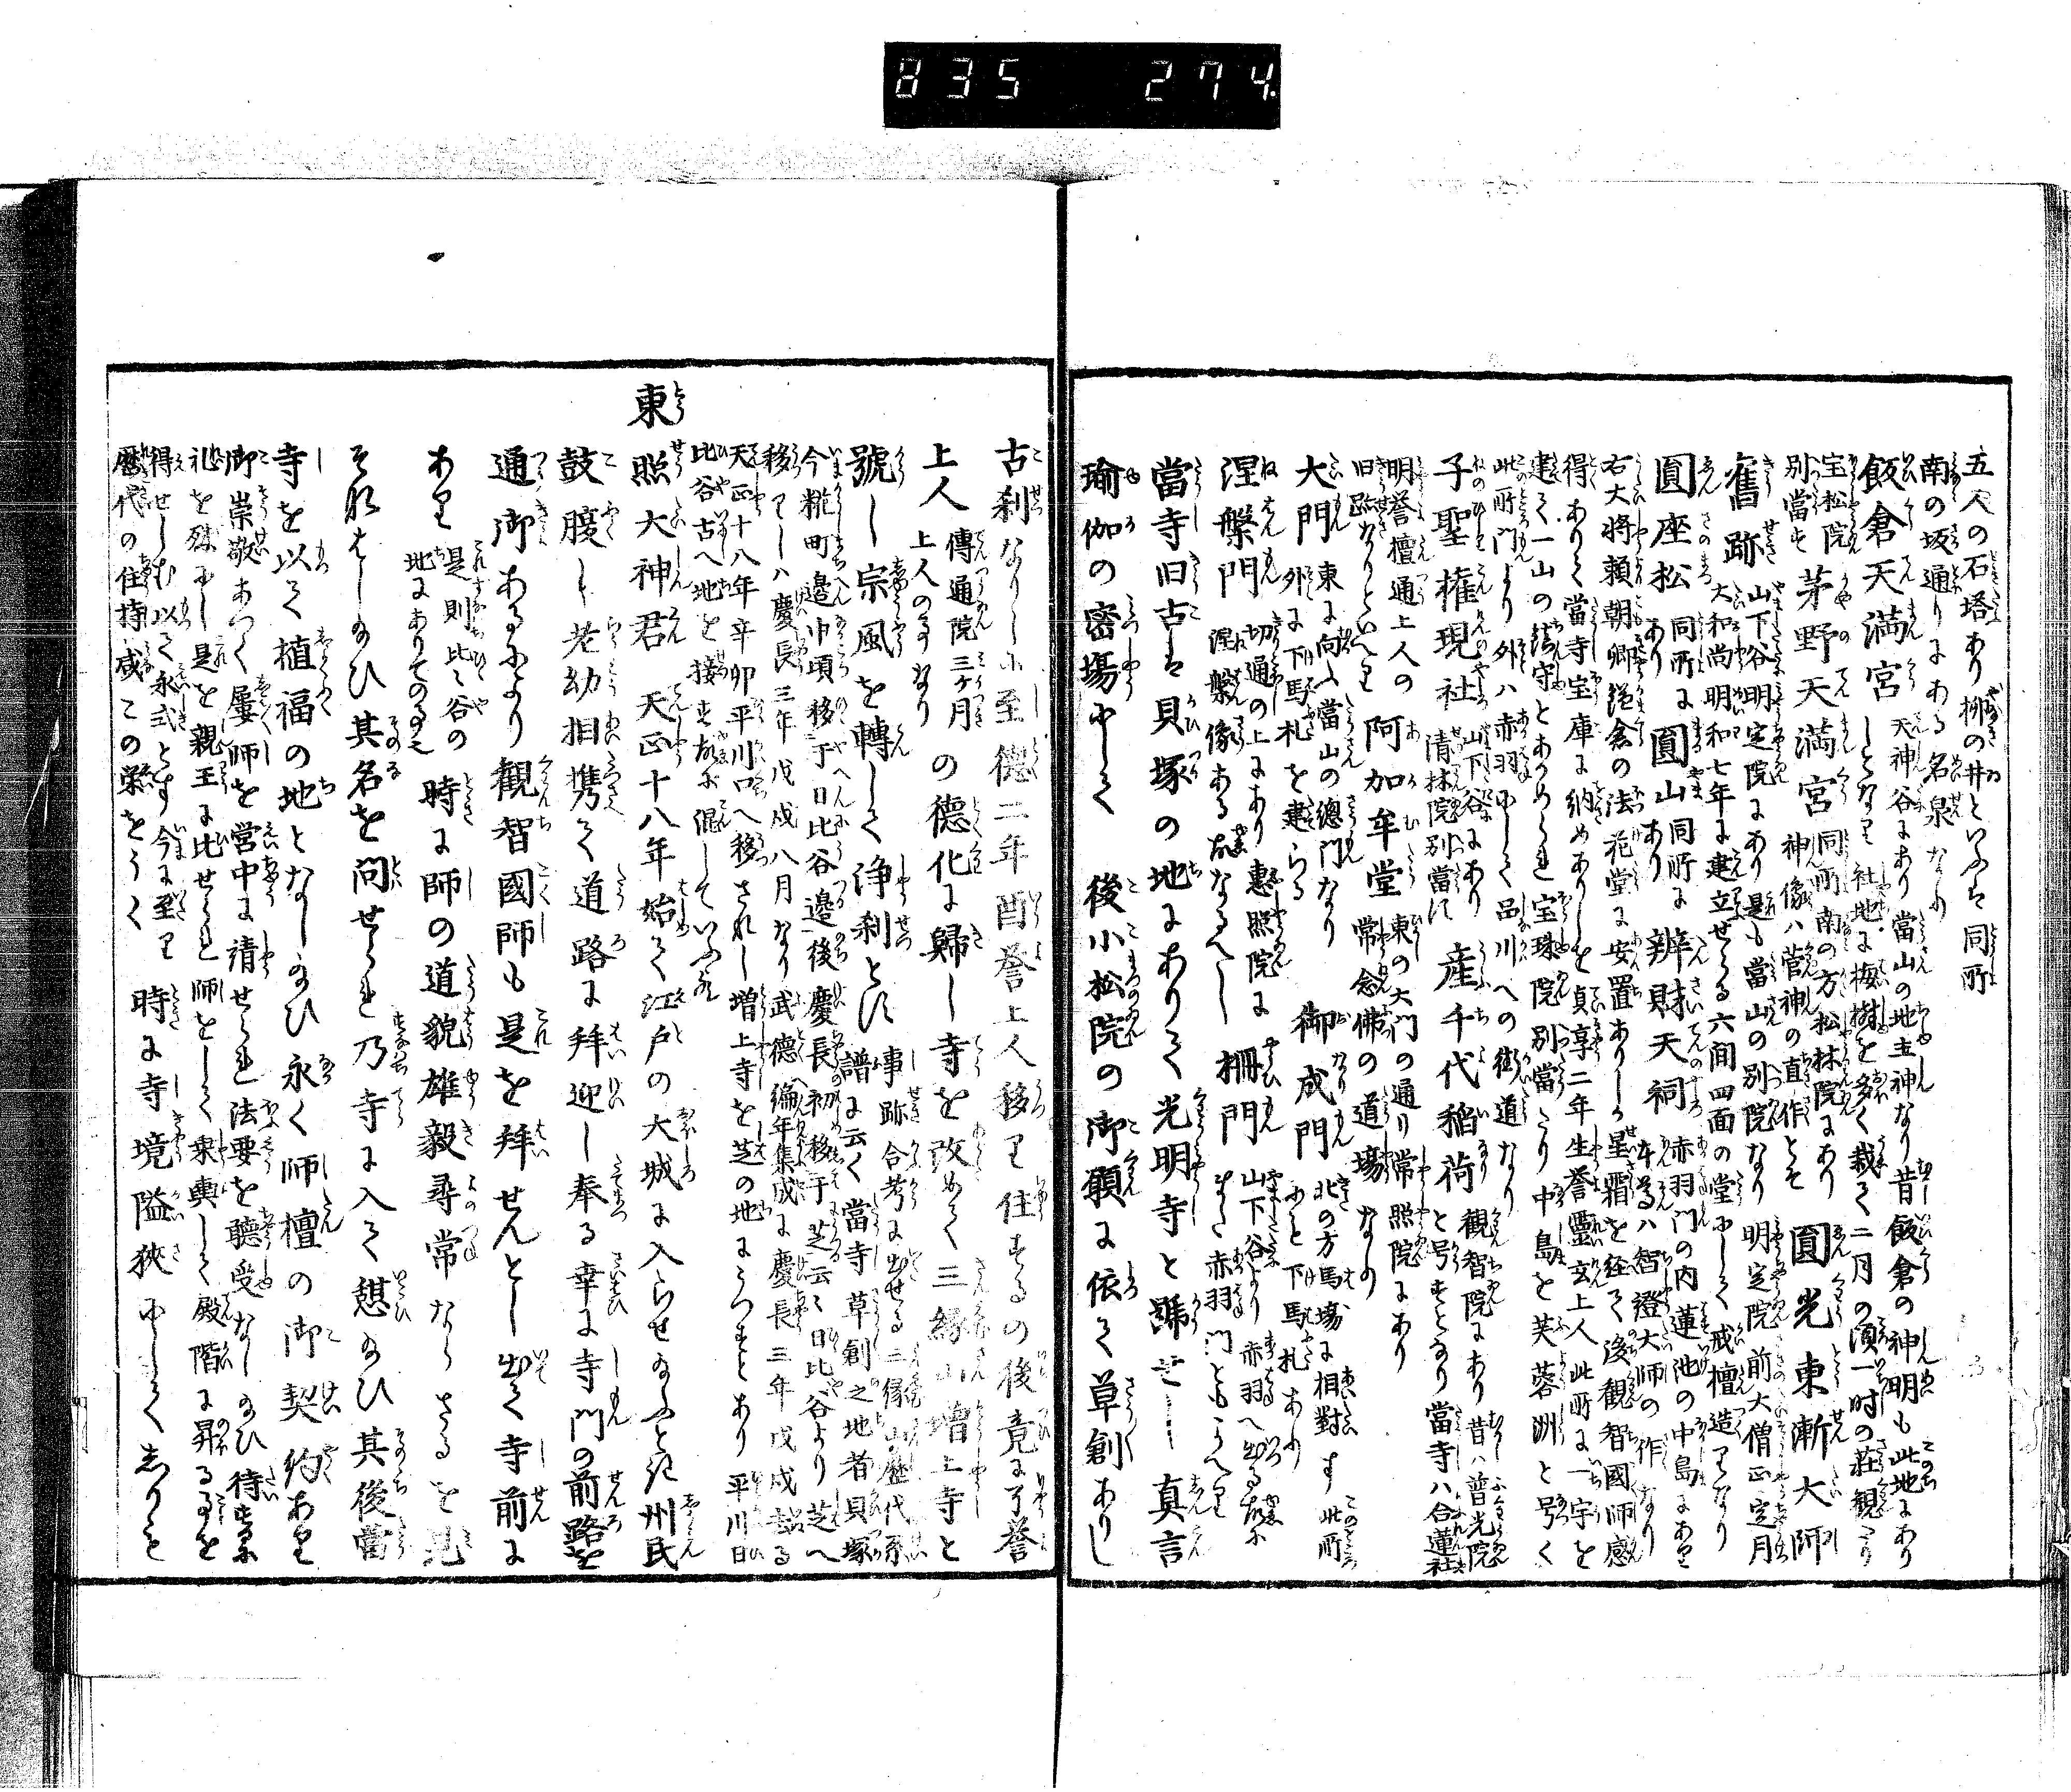 835 274.
五人の石塔あり柳の井といふは同所
南の坂通りにある名泉なり
飯倉天満宮
天神谷にあり當山の地主神なり昔飯倉の神明も此地にあり
しとなり社地に梅樹を多く栽て二月の頃一時の荘観たり
宝松院
別當す
茅野天満宮
同所南の方松林院にあり
神像ハ菅神の直作とそ
圓光東漸大師
舊跡
山下谷明定院にあり是も當山の別院なり明定院前大僧正定月
大和尚明和七年に建立せる六間四面の堂にして戒檀造りなり
圓座松
同所に
あり
圓山
同所に
あり
辨財天祠
赤羽門の内蓮池の中島にあり
本尊ハ智證大師の作なり
右大将頼朝卿鎌倉の法花堂に安置ありしか星霜を経て後観智國師感
得ありて當寺宝庫に納めありしを貞享二年生誉靈玄上人此所に一宇を
建て一山の鎮守とあかめられ宝珠院別當たり中島を芙蓉洲と号く
此所門より外ハ赤羽にして品川への街道なり
子聖権現社
山下谷にあり
清林院別當に
産千代稲荷
観智院にあり昔ハ普光院
と号すとなり當寺ハ合蓮社
明誉檀通上人の
旧跡なりといへり
阿加牟堂
東の大門の通り常照院にあり
常念佛の道場なり
大門
東に向ふ當山の總門なり
外に下馬札を建らる
御成門
北の方馬場に相對す此所
にも下馬札あり
涅槃門
切通の上にあり惠照院に
涅槃像ある故なるへし
柵門
山下谷より赤羽へ出る故に
また赤羽門ともいへり
當寺旧古は貝塚の地にありて光明寺と號せし真言
瑜伽の密場にして後小松院の御願に依て草創ありし
古刹なりしに至德二年酉誉上人移り住するの後竟に了誉
上人
傳通院三ヶ月
上人の事なり
の德化に歸し寺を改めて三縁山増上寺と
號し宗風を轉して浄刹とす
事跡合考に出せる三縁山歴代系
譜に云く當寺草創之地者貝塚
今糀町邊中頃移于日比谷邊後慶長初移于芝云々日比谷より芝へ
移りしハ慶長三年戊戌八月なり武德編年集成に慶長三年戊戌
天正十八年辛卯平川口へ移されし増上寺を芝の地にうつすとあり平川日
比谷古へ地を接す故に混していふ歟
東
照大神君天正十八年始て江戸の大城に入らせ給ふと北州民
鼓腹し老幼相携て道路に拜迎し奉る幸に寺門の前路を
通御あるにより観智國師も是を拜せんとし出て寺前に
あり
是則比々谷の
地にありての事也
時に師の道貌雄毅尋常ならさるを見
そなはし給ひ其名を問せられ乃寺に入て憩給ひ其後當
寺を以て植福の地となし給ひ永く師檀の御契約あり
御崇敬あつく屢師を営中に請せられ法要を聽受なし給ひ待するに
礼を殊にし是を親王に比せられ師をして乗輿して殿階に昇る事を
得せしむ以て永式とす今に至り
歴代の住持咸この栄をうく
時に寺境隘狹にしてしりを